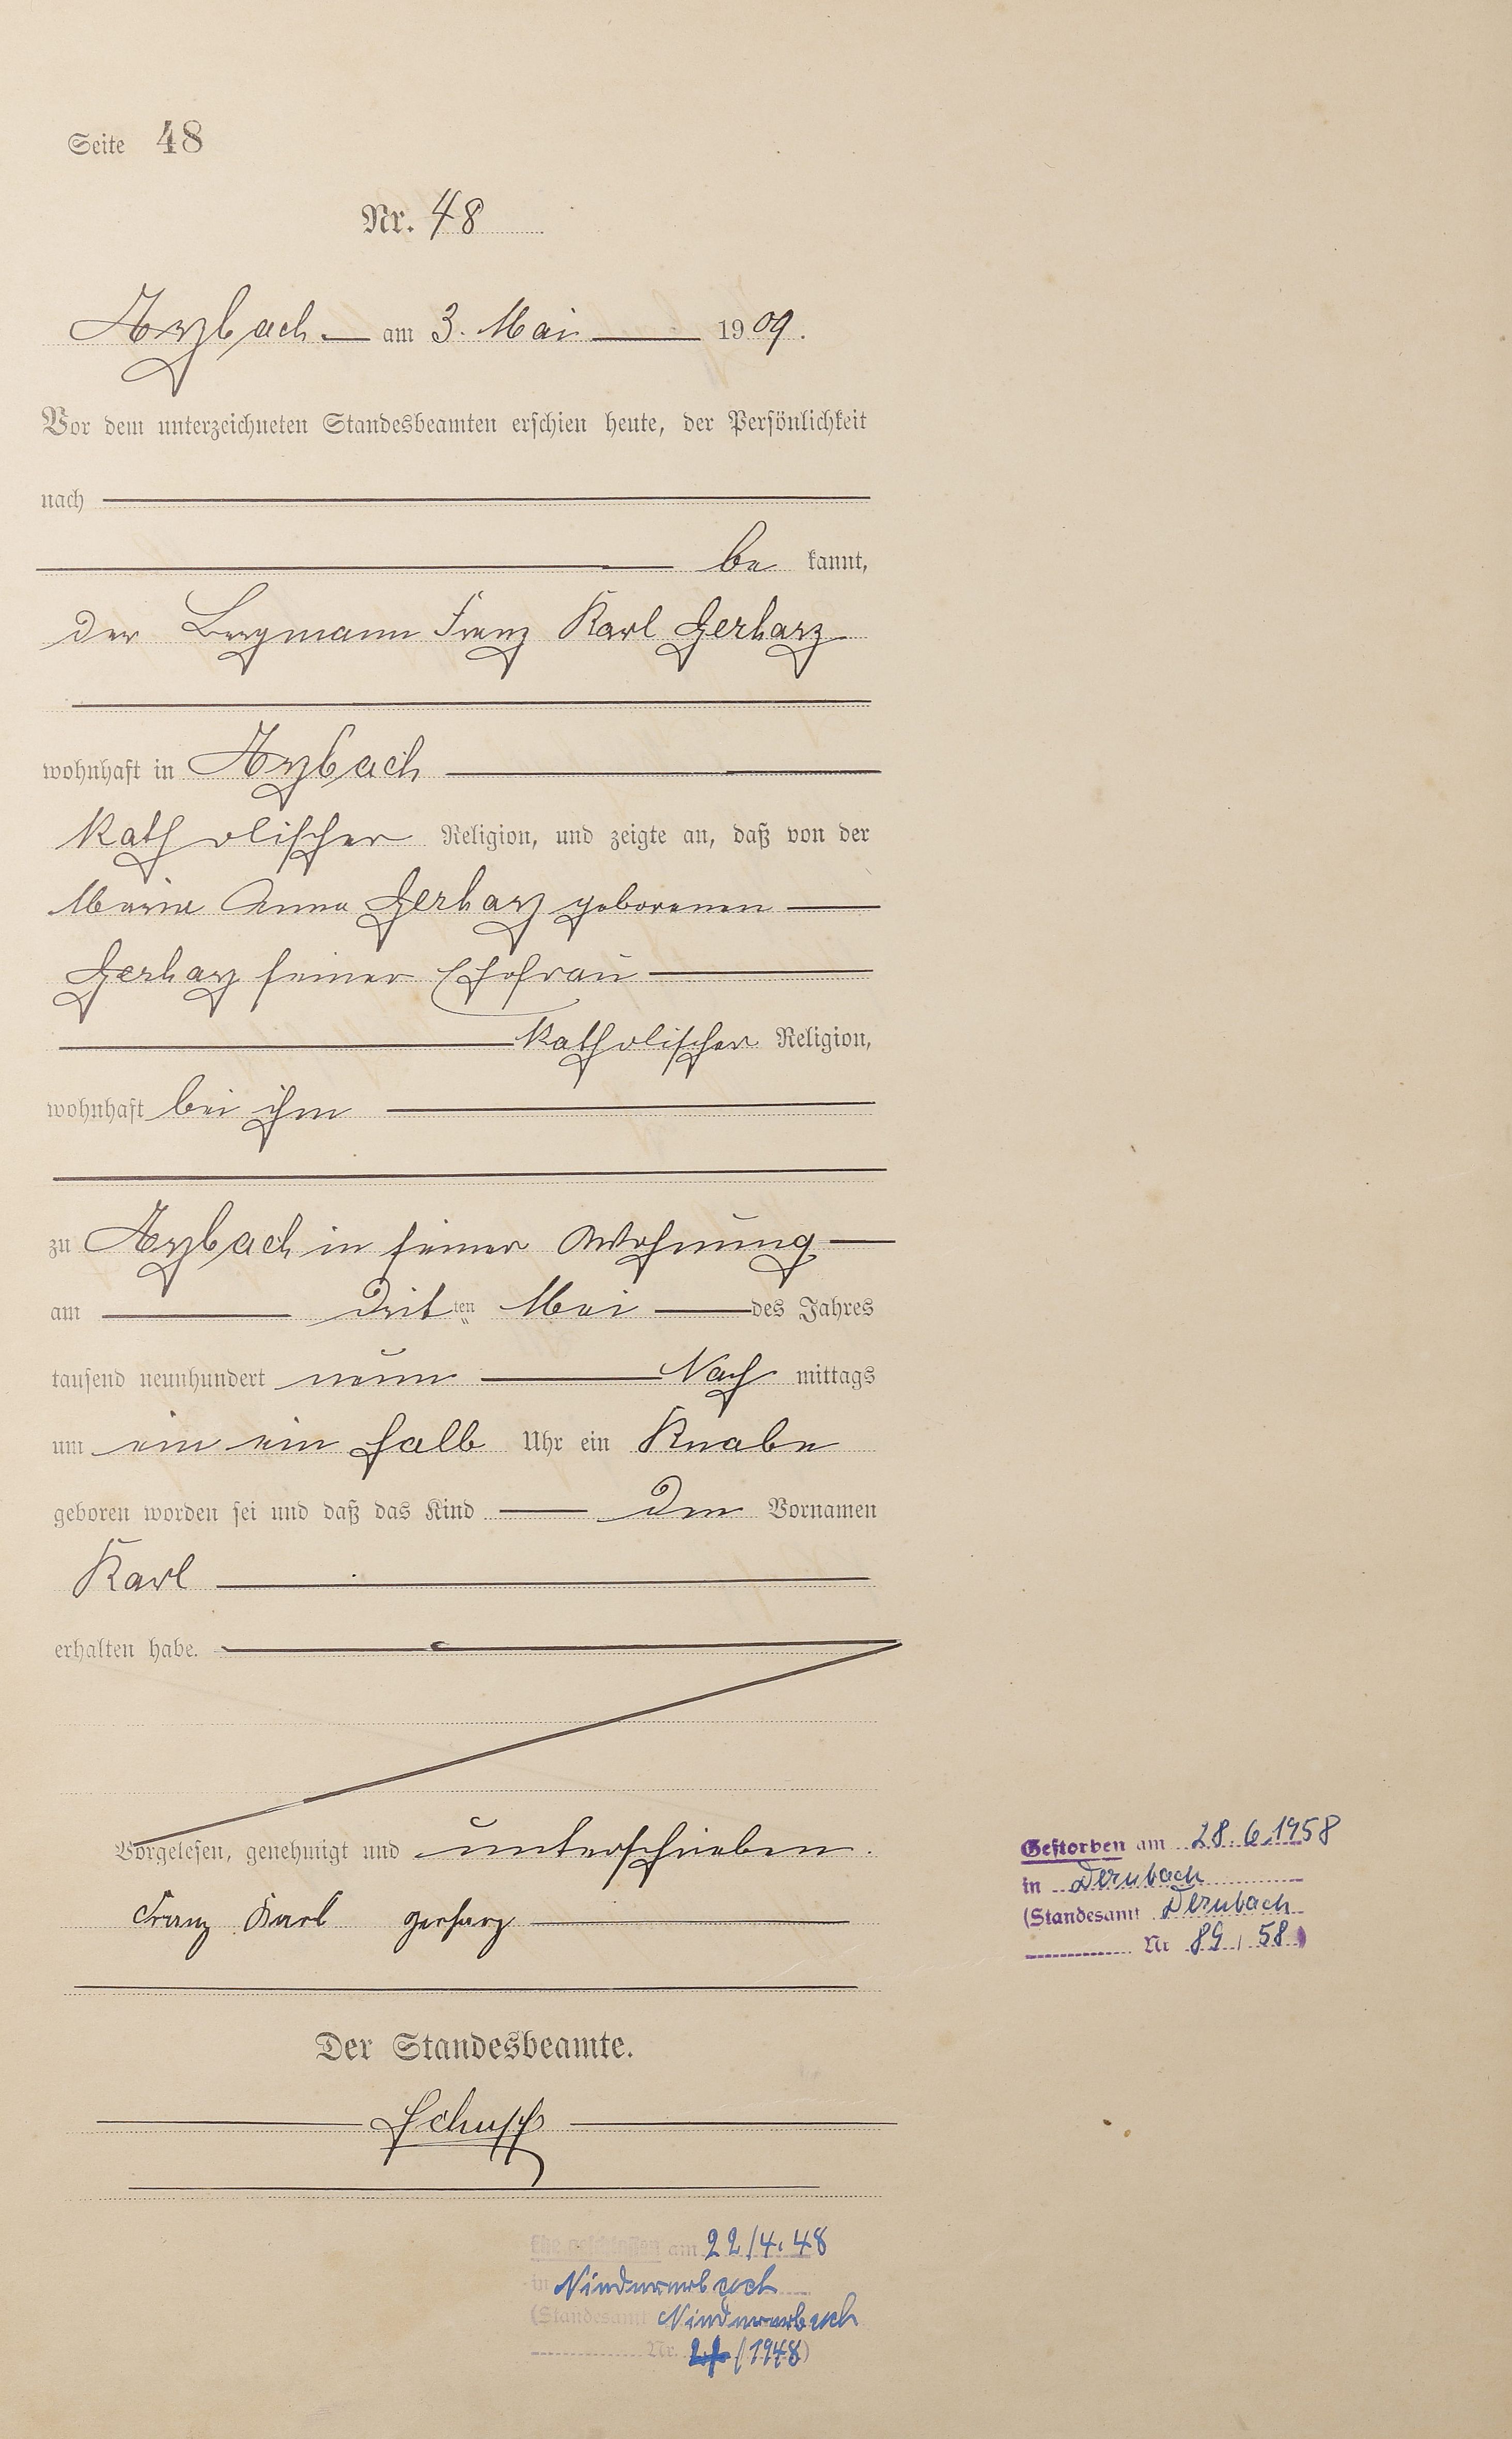 Seite 48
Nr. 48
Arzbach am 3. Mai 1909.
Vor dem unterzeichneten Standesbeamten erschien heute, der Persönlichkeit
nach
be kannt,
der Bergmann Franz Karl Gerharz
wohnhaft in Arzbach
katholischer Religion, und zeigte an, daß von der
Maria Anna Gerharz geborenen
Gerharz seiner Ehefrau
katholischer Religion,
wohnhaft bei ihm
zu Arzbach in seiner Wohnung
am dritten Mai des Jahres
tausend neunhundert neun Nach mittags
um ein ein halb Uhr ein Knabe
geboren worden sei und daß das Kind den Vornamen
Karl
erhalten habe.
Vorgelesen, genehmigt und unterschrieben.
Franz Karl Gerharz
Gestorben am 28.6.1958
in Dernbach
(Standesamt Dernbach
Nr 89/58)
Der Standesbeamte.
Schupp
Ehe geschlossen am 22/4.48
in Niederelbach
(Standesamt
Nr. /1948)